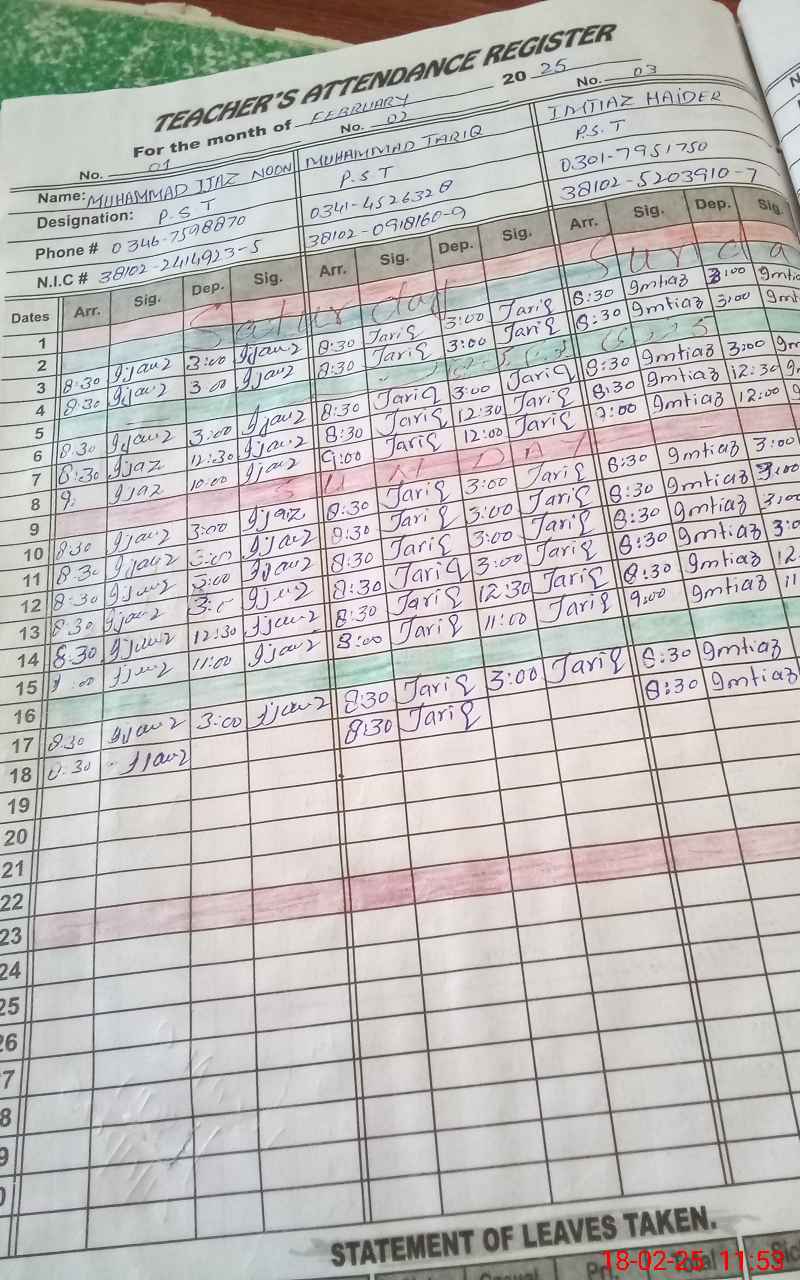 TEACHER'S ATTENDANCE REGISTER
For the month of FEBRUARY 20 25
No. 01 No. 02 No. 03
Name: MUHAMMAD IJAZ NOON MUHAMMAD TARIQ IMTIAZ HAIDER
Designation: P.S.T P.S.T P.S.T
Phone # 0346-7598870 0341-4526328 0301-7951750
N.I.C # 38102-2414923-5 38102-0918160-9 38102-5203910-7
Dates Arr. Sig. Dep. Sig. Arr. Sig. Dep. Sig. Arr. Sig. Dep. Sig
1 Saturday
2 Sunda
3 8:30 Ijaz 3:00 Ijaz 8:30 Tariq 3:00 Tariq 8:30 Imtiaz 3:00 Imtia
4 8:30 Ijaz 3 00 Ijaz 8:30 Tariq 3:00 Tariq 8:30 Imtiaz 3:00 Imt
5
6 8:30 Ijaz 3:00 Ijaz 8:30 Tariq 3:00 Tariq 8:30 Imtiaz 3:00 Im
7 8:30 Ijaz 12:30 Ijaz 8:30 Tariq 12:30 Tariq 8:30 Imtiaz 12:30
8 9: Ijaz Ijaz 9:00 Tariq 12:00 Tariq 9:00 Imtiaz 12:00
9 SUNDAY
10 8:30 Ijaz 3:00 Ijaz 8:30 Tariq 3:00 Tariq 8:30 Imtiaz 3:00
11 8:30 Ijaz 3:00 Ijaz 8:30 Tariq 3:00 Tariq 8:30 Imtiaz 3:00
12 8:30 Ijaz 3:00 Ijaz 8:30 Tariq 3:00 Tariq 8:30 Imtiaz 3:00
13 8:30 Ijaz 3: Ijaz 8:30 Tariq 3:00 Tariq 8:30 Imtiaz 3:0
14 8:30 Ijaz 12:30 Ijaz 8:30 Tariq 12:30 Tariq 8:30 Imtiaz 12:
15 Ijaz 11:00 Ijaz Tariq 11:00 Tariq 9:00 Imtiaz 11
16
17 8:30 Ijaz 3:00 Ijaz 8:30 Tariq 3:00 Tariq 8:30 Imtiaz
18 8:30 Ijaz 8:30 Tariq 8:30 Imtiaz
19
20
21
22
23
24
25
26
7
8
9
STATEMENT OF LEAVES TAKEN.
Casual Total Sic
18-02-25 11:53